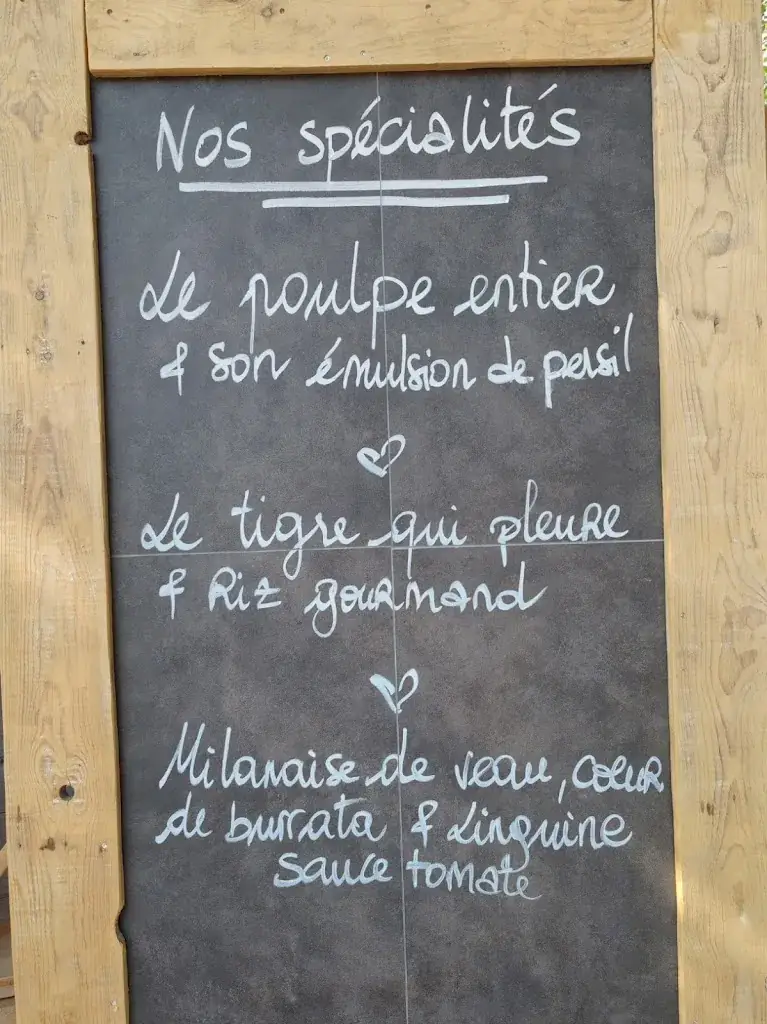 Nos spécialités
Le poulpe entier
& son émulsion de persil
Le tigre qui pleure
& Riz gourmand
Milanaise de veau, coeur
de burrata & Linguine
sauce tomate